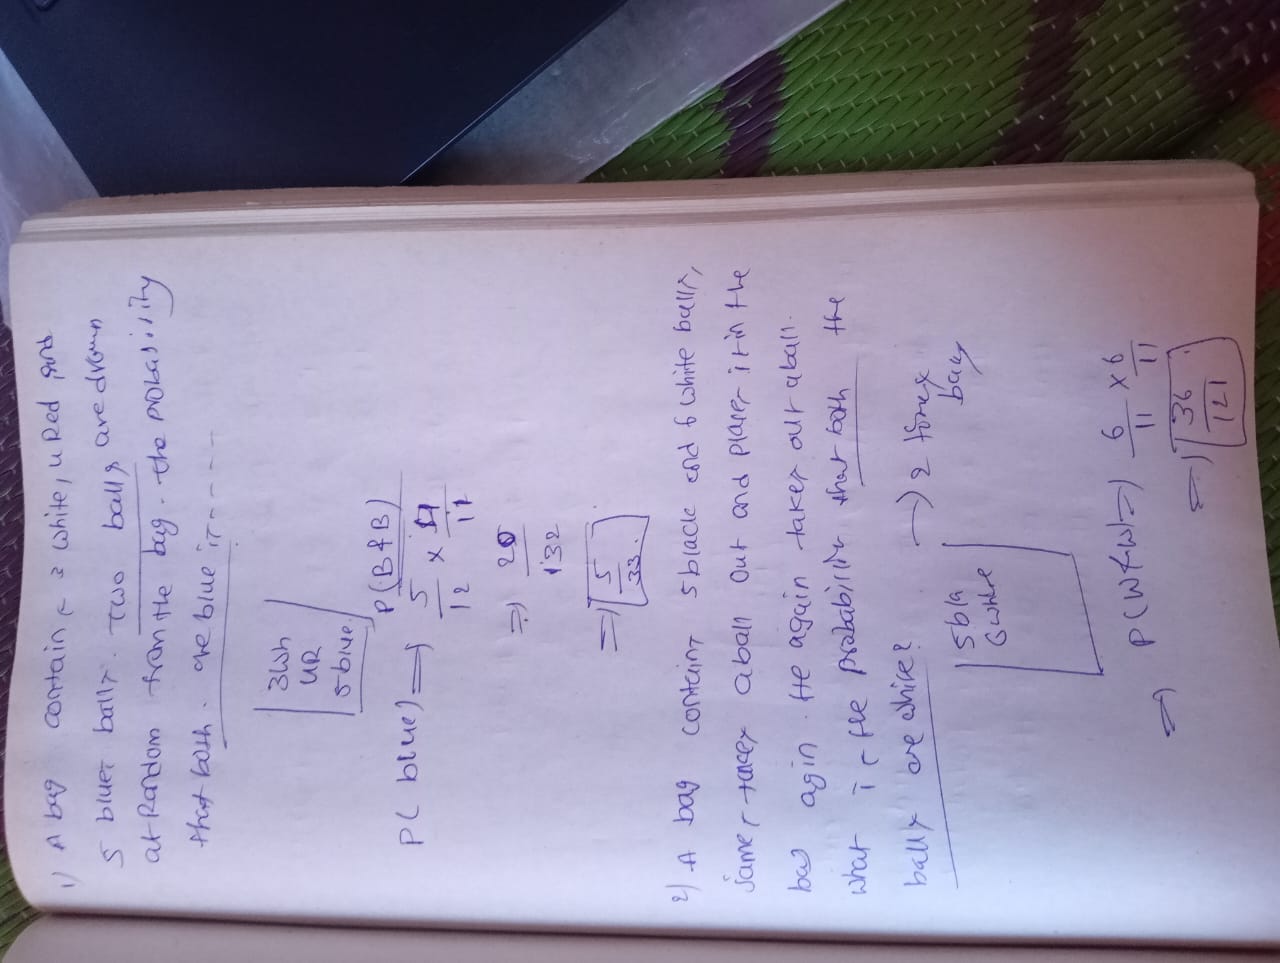 1) A bag contain 3 white, 4 Red and
5 blue balls. Two balls are drawn
at Random from the bag. the probability
that both. are blue is -----
3wh
4R
5 blue
P(B&B)
P( blue) => 5/12 × 4/11
=> 20/132
=> 5/33.
2) A bag contains 5 black and 6 white balls,
James takes a ball out and places it in the
bag agin. He again takes out a ball.
what is the probability that both the
balls are white?
5 bla
6 white
=> P(W&W) => 6/11 × 6/11
=> 36/121